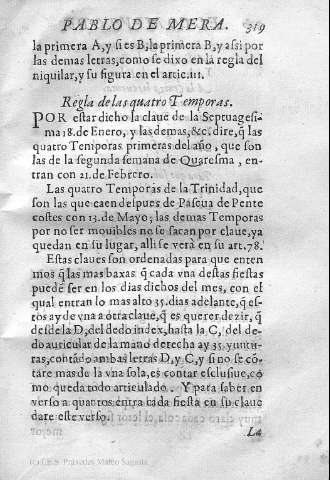 PABLO DE MERA. 319
la primera A, y si es B, la primera B, y assi por
las demas letras, como se dixo en la regla del
niquilar, y su figura en el artic. iii.
Regla de las quatro Temporas.
POR estar dicho la claue de la Septuagesi-
ma 18. de Enero, y las demas, &c. dire, q̃ las
quatro Temporas primeras del año, que son
las de la segunda semana de Quaresma, en-
tran con 21. de Febrero.
Las quatro Temporas de la Trinidad, que
son las que caen despues de Pascua de Pente
costes con 13. de Mayo; las demas Temporas
por no ser mouibles no se sacan por claue, ya
quedan en su lugar, alli se verà en su art. 78.
Estas claues son ordenadas para que enten
mos q̃ las mas baxas q̃ cada vna destas fiestas
puedẽ ser en los dias dichos del mes, con el
qual entran lo mas alto 35. dias adelante, q̃ es-
tos ay de vna a otra claue, q̃ es querer dezir, q̃
desde la D, del dedo index, hasta la C, del de-
do auricular de la mano derecha ay 35. yuntu-
ras, contãdo ambas letras D, y C, y si no se cõ-
tare mas de la vna sola, es contar esclusiue, co
mo queda todo articulado. Y para saber en
verso a quantos entra cada fiesta en su claue
dare este verso.
La
(c) I.E.S. Práxedes Mateo Sagasta